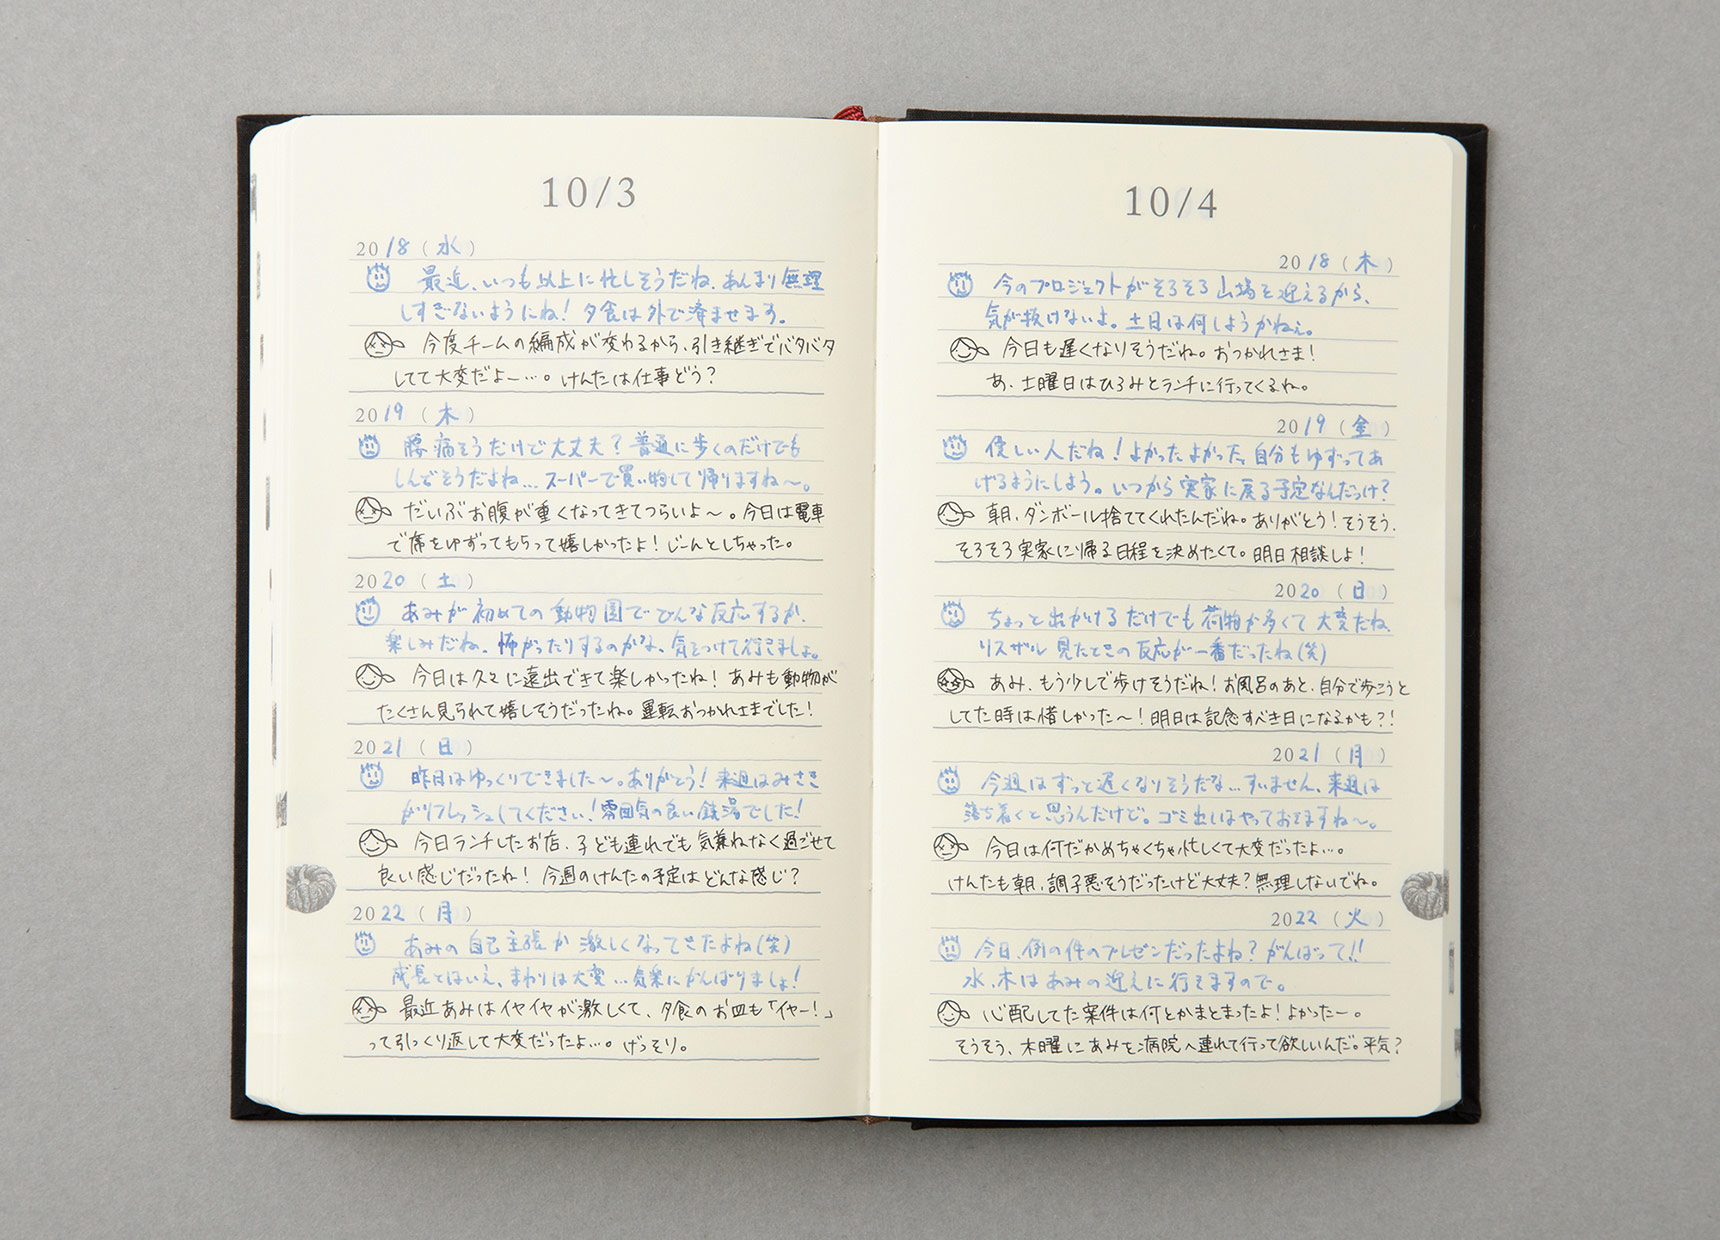 10/3
2018(水)
最近、いつも以上に忙しそうだね、あんまり無理
しすぎないようにね！夕食は外で済ませます。
今度チームの編成が変わるから、引き継ぎでバタバタ
してて大変だよー…。けんたは仕事どう？
2019(木)
腰痛そうだけど大丈夫？普通に歩くのだけでも
しんどそうだよね…スーパーで買い物して帰りますね〜。
だいぶお腹が重くなってきてつらいよ〜。今日は電車
で席をゆずってもらって嬉しかったよ！じーんとしちゃった。
2020(土)
あみが初めての動物園でどんな反応するか、
楽しみだね、怖がったりするのかな、気をつけて行きましょ。
今日は久々に遠出できて楽しかったね！あみも動物が
たくさん見られて嬉しそうだったね。運転おつかれさまでした！
2021(日)
昨日はゆっくりできました〜。ありがとう！来週はみさき
がリフレッシュしてください！雰囲気の良い銭湯でした！
今日ランチしたお店、子ども連れでも気兼ねなく過ごせて
良い感じだったね！今週のけんたの予定はどんな感じ？
2022(月)
あみの自己主張が激しくなってきたよね(笑)
成長とはいえ、まわりは大変…気楽にがんばりましょ！
最近あみはイヤイヤが激しくて、夕食のお皿も「イヤー！」
って引っくり返して大変だったよ…。げっそり。
10/4
2018(木)
今のプロジェクトがそろそろ山場を迎えるから、
気が抜けないよ。土日は何しようかねぇ。
今日も遅くなりそうだね。おつかれさま！
あ、土曜日はひろみとランチに行ってくるね。
2019(金)
優しい人だね！よかったよかった、自分もゆずってあ
げるようにしよう。いつから実家に戻る予定なんだっけ？
朝、ダンボール捨ててくれたんだね。ありがとう！そうそう、
そろそろ実家に帰る日程を決めたくて。明日相談しよ！
2020(日)
ちょっと出かけるだけでも荷物が多くて大変だね、
リスザル見たときの反応が一番だったね(笑)
あみ、もう少しで歩けそうだね！お風呂のあと、自分で歩こうと
してた時は惜しかった〜！明日は記念すべき日になるかも？！
2021(月)
今週はずっと遅くなりそうだな…すいません、来週は
落ち着くと思うんだけど。ゴミ出しはやっておきますね〜。
今日は何だかめちゃくちゃ忙しくて大変だったよ…。
けんたも朝、調子悪そうだったけど大丈夫？無理しないでね。
2022(火)
今日、例の件のプレゼンだったよね？がんばって！！
水、木はあみの迎えに行てますので。
心配してた案件は何とかまとまったよ！よかったー。
そうそう、木曜にあみを病院へ連れて行って欲しいんだ。平気？